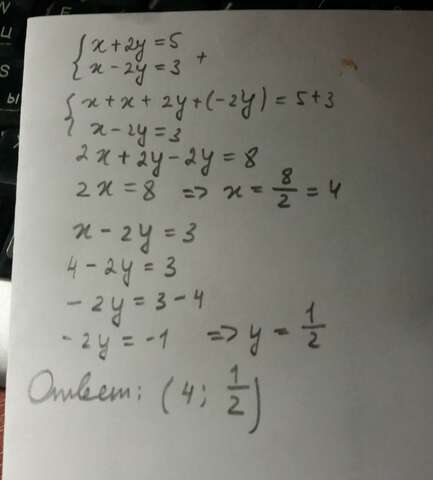 { x + 2y = 5
{ x - 2y = 3 +
{ x + x + 2y + (-2y) = 5 + 3
{ x - 2y = 3
2x + 2y - 2y = 8
2x = 8 => x = 8/2 = 4
x - 2y = 3
4 - 2y = 3
- 2y = 3 - 4
- 2y = -1 => y = 1/2
Ответ: (4; 1/2)